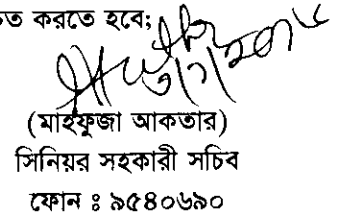 করতে হবে;
(মাহফুজা আকতার)
সিনিয়র সহকারী সচিব
ফোন ঃ ৯৫৪০৬৯০